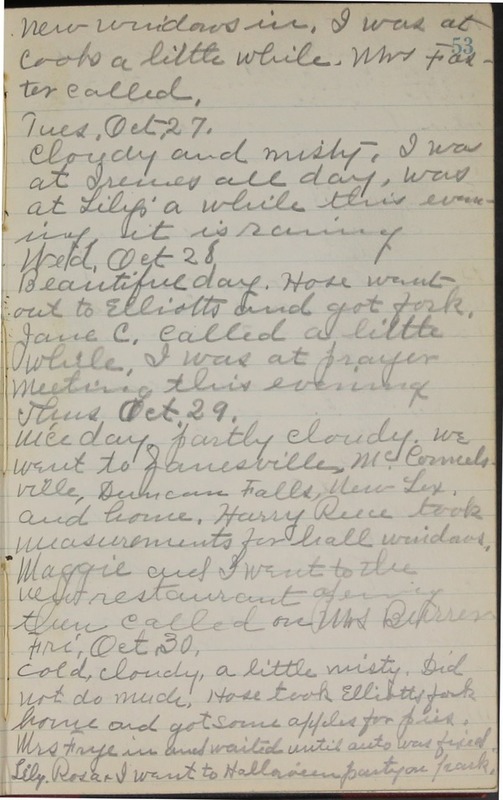 new windows in. I was at
53
Cooks a little while. Mrs Fos-
ter called.
Tues, Oct, 27.
Cloudy and misty. I was
at Irenes all day, was
at Lily's a while this even-
ing, it is raining
Wed, Oct 28
Beautiful day. Hose went
out to Elliotts and got fork.
Jane C. called a little
while, I was at prayer
meeting this evening
Thus Oct, 29.
nice day, partly cloudy. we
went to Zanesville, McConnels-
ville, Duncan Falls, New Lex.
and home. Harry Rice took
measurements for hall windows.
Maggie and I went to the
new restaurant opening
then called on Mrs
Fri, Oct 30,
Cold, cloudy, a little misty. Did
not do much, Hose took Elliotts fork
home and got some apples for pies.
Mrs Frye in and waited until auto was fixed.
Lily. Rosa & I went to Halloween party on park,